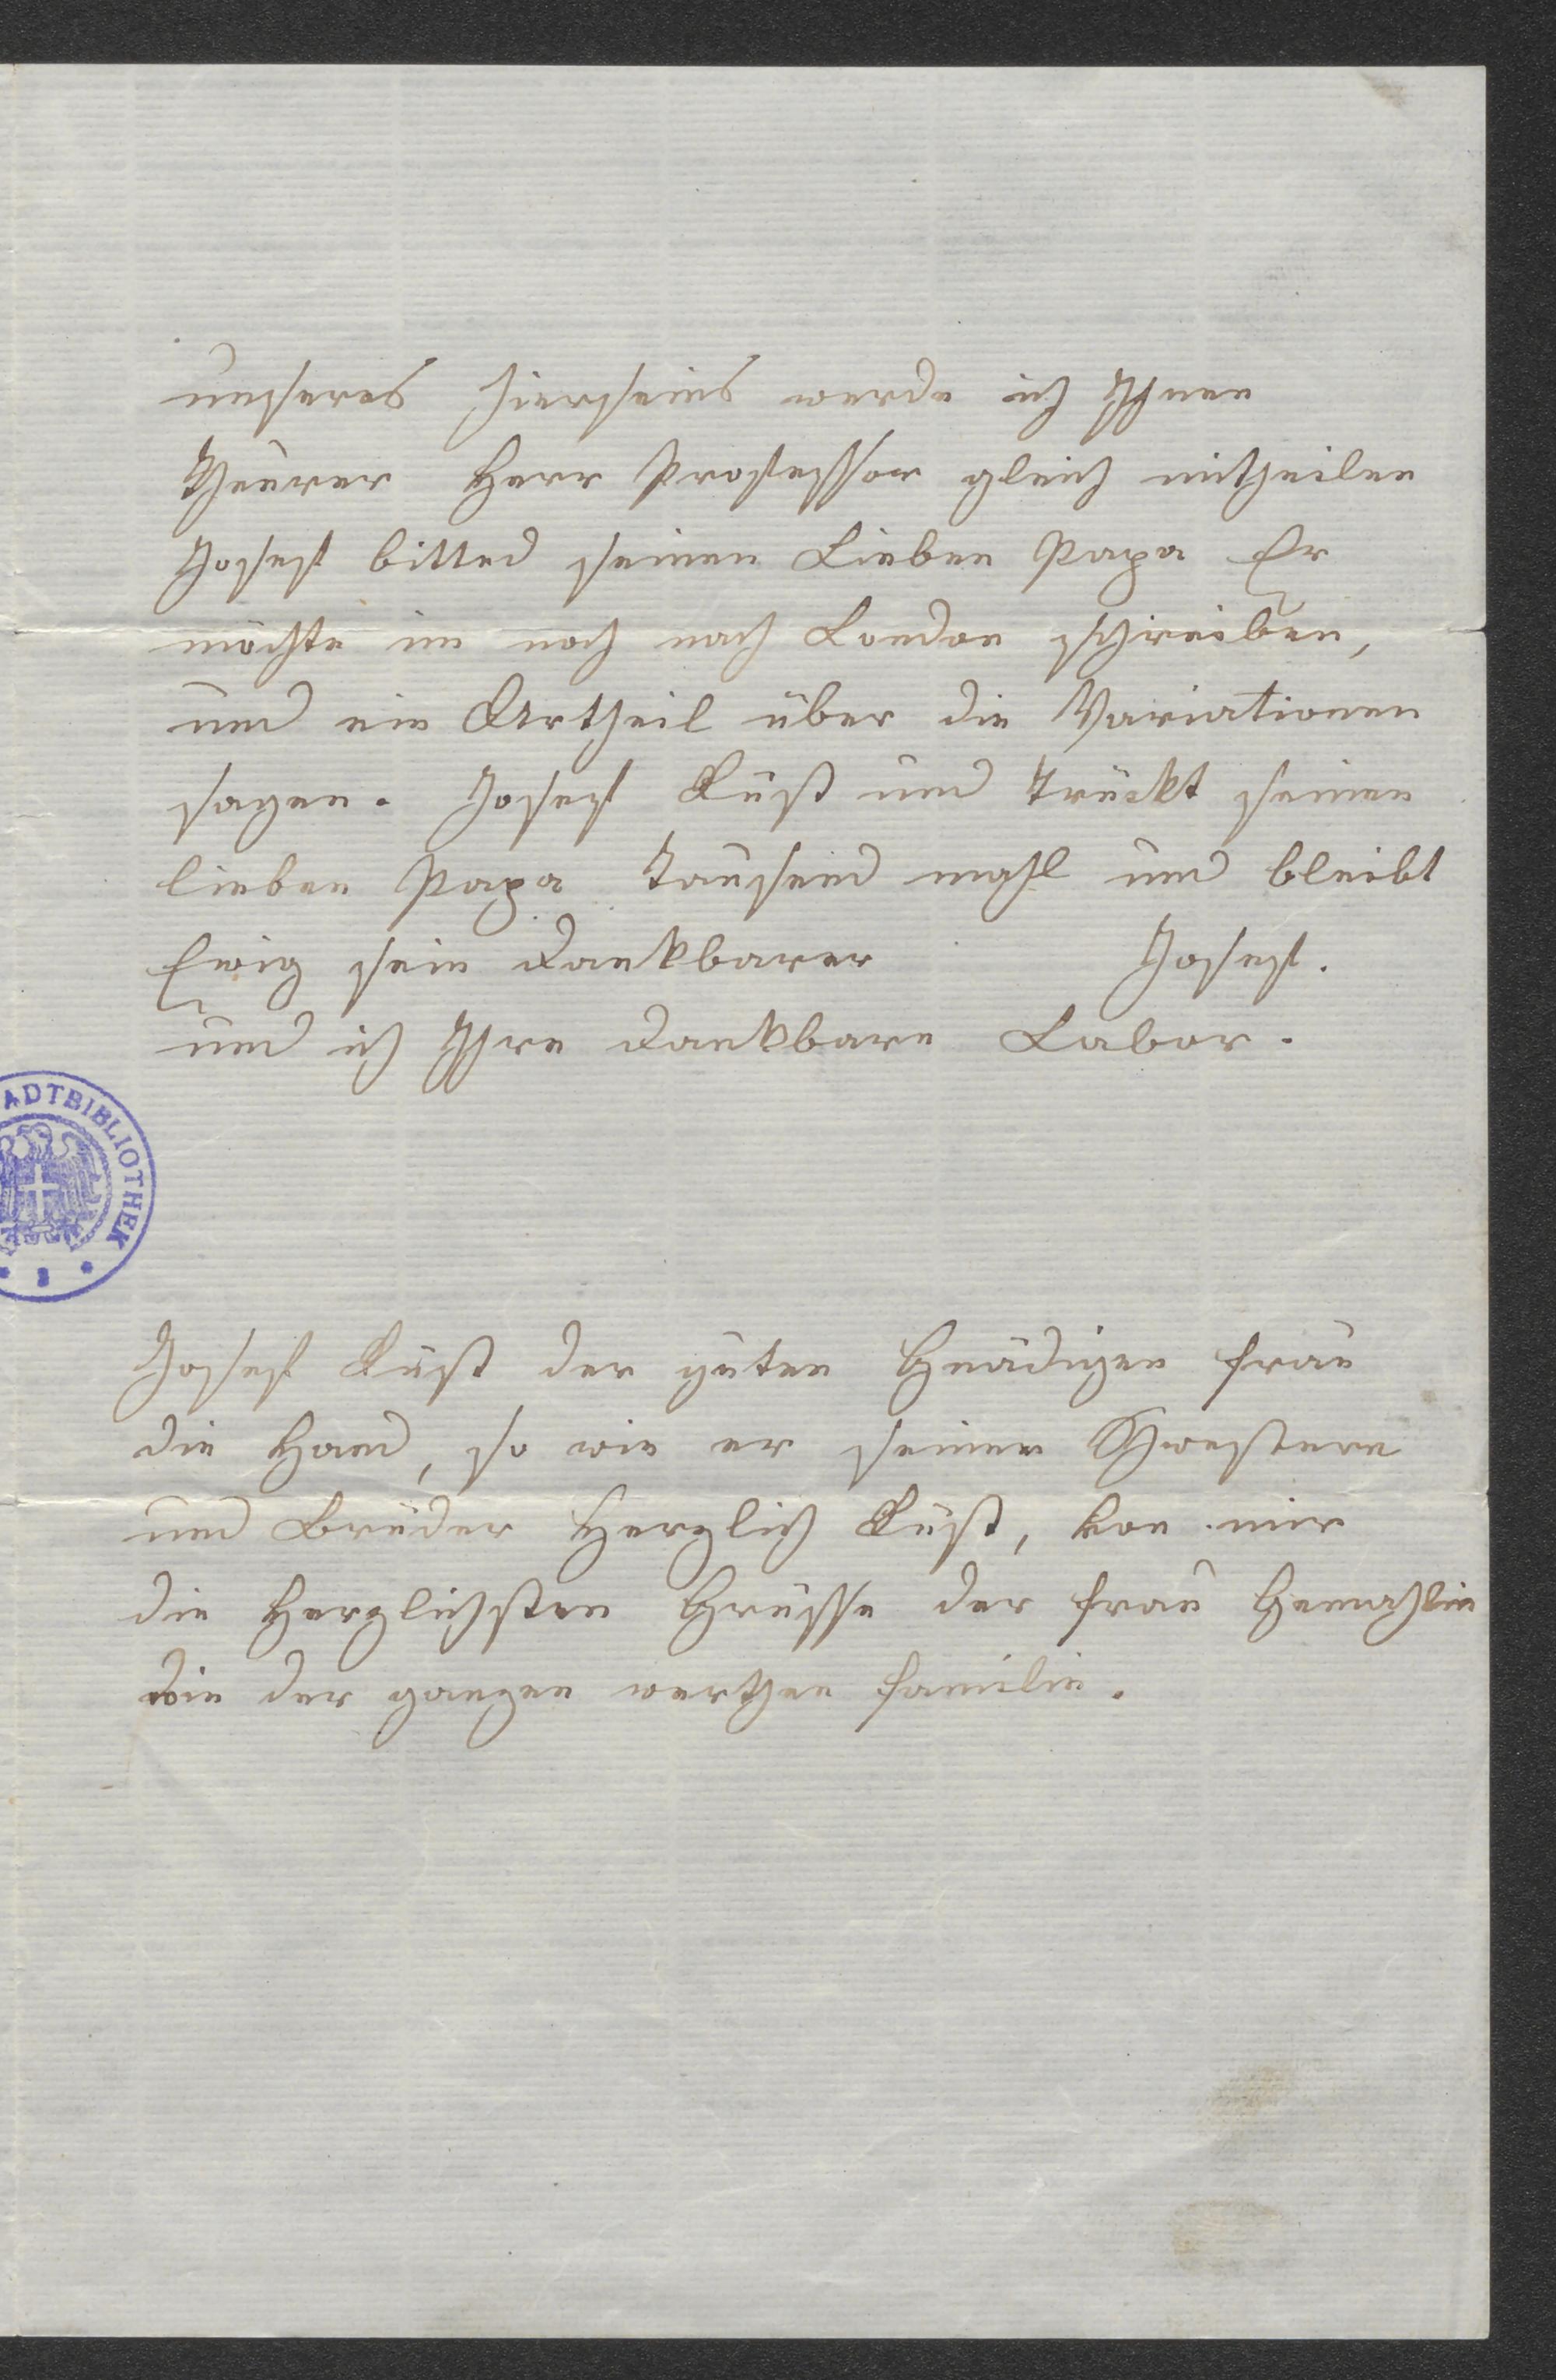 unseres hierseins werde ich Ihnen
Theurer Herr Professor gleich mitheilen
Josef bitted seinen Lieben Papa Er
möchte im noch nach London schreiben,
und ein Urtheil über die Variationen
sagen. Josef Küst und trückt seinen
lieben Papa Tausend mahl und bleibt
Ewig sein dankbarer Josef.
und ich Ihre dankbare Labor.
ADTBIBLIOTHEK
Josef Küst der guten Gnädigen frau
die Hand, so wie er seinen Schwestern
und Brüder Herzlich Küst, von mir
die Herzlichsten Grüsse der frau Gemahlin
wie der ganzen werthen familie.